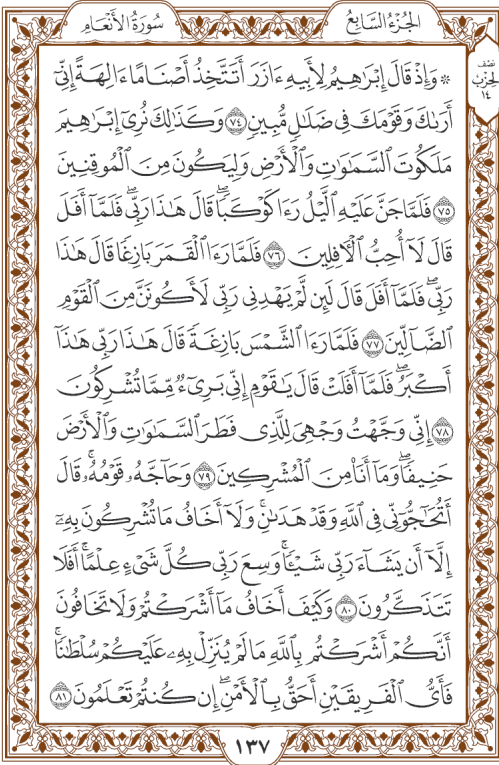 سُورَةُ الأَنْعَامِ
الجُزْءُ السَّابِعُ
نصف
الحزب
١٤
۞ وَإِذْ قَالَ إِبْرَٰهِيمُ لِأَبِيهِ ءَازَرَ أَتَتَّخِذُ أَصْنَامًا ءَالِهَةً إِنِّىٓ
أَرَىٰكَ وَقَوْمَكَ فِى ضَلَٰلٍ مُّبِينٍ ٧٤ وَكَذَٰلِكَ نُرِىٓ إِبْرَٰهِيمَ
مَلَكُوتَ السَّمَٰوَٰتِ وَالْأَرْضِ وَلِيَكُونَ مِنَ الْمُوقِنِينَ
٧٥ فَلَمَّا جَنَّ عَلَيْهِ الَّيْلُ رَءَا كَوْكَبًا ۖ قَالَ هَٰذَا رَبِّى ۖ فَلَمَّآ أَفَلَ
قَالَ لَآ أُحِبُّ الْءَافِلِينَ ٧٦ فَلَمَّا رَءَا الْقَمَرَ بَازِغًا قَالَ هَٰذَا
رَبِّى ۖ فَلَمَّآ أَفَلَ قَالَ لَئِن لَّمْ يَهْدِنِى رَبِّى لَأَكُونَنَّ مِنَ الْقَوْمِ
الضَّآلِّينَ ٧٧ فَلَمَّا رَءَا الشَّمْسَ بَازِغَةً قَالَ هَٰذَا رَبِّى هَٰذَآ
أَكْبَرُ ۖ فَلَمَّآ أَفَلَتْ قَالَ يَٰقَوْمِ إِنِّى بَرِىٓءٌ مِّمَّا تُشْرِكُونَ
٧٨ إِنِّى وَجَّهْتُ وَجْهِىَ لِلَّذِى فَطَرَ السَّمَٰوَٰتِ وَالْأَرْضَ
حَنِيفًا ۖ وَمَآ أَنَا۠ مِنَ الْمُشْرِكِينَ ٧٩ وَحَآجَّهُۥ قَوْمُهُۥ ۚ قَالَ
أَتُحَٰٓجُّوٓنِّى فِى اللَّهِ وَقَدْ هَدَىٰنِ ۚ وَلَآ أَخَافُ مَا تُشْرِكُونَ بِهِۦٓ
إِلَّآ أَن يَشَآءَ رَبِّى شَيْـًٔا ۗ وَسِعَ رَبِّى كُلَّ شَىْءٍ عِلْمًا ۗ أَفَلَا
تَتَذَكَّرُونَ ٨٠ وَكَيْفَ أَخَافُ مَآ أَشْرَكْتُمْ وَلَا تَخَافُونَ
أَنَّكُمْ أَشْرَكْتُم بِاللَّهِ مَا لَمْ يُنَزِّلْ بِهِۦ عَلَيْكُمْ سُلْطَٰنًا ۚ
فَأَىُّ الْفَرِيقَيْنِ أَحَقُّ بِالْأَمْنِ ۖ إِن كُنتُمْ تَعْلَمُونَ ٨١
١٣٧